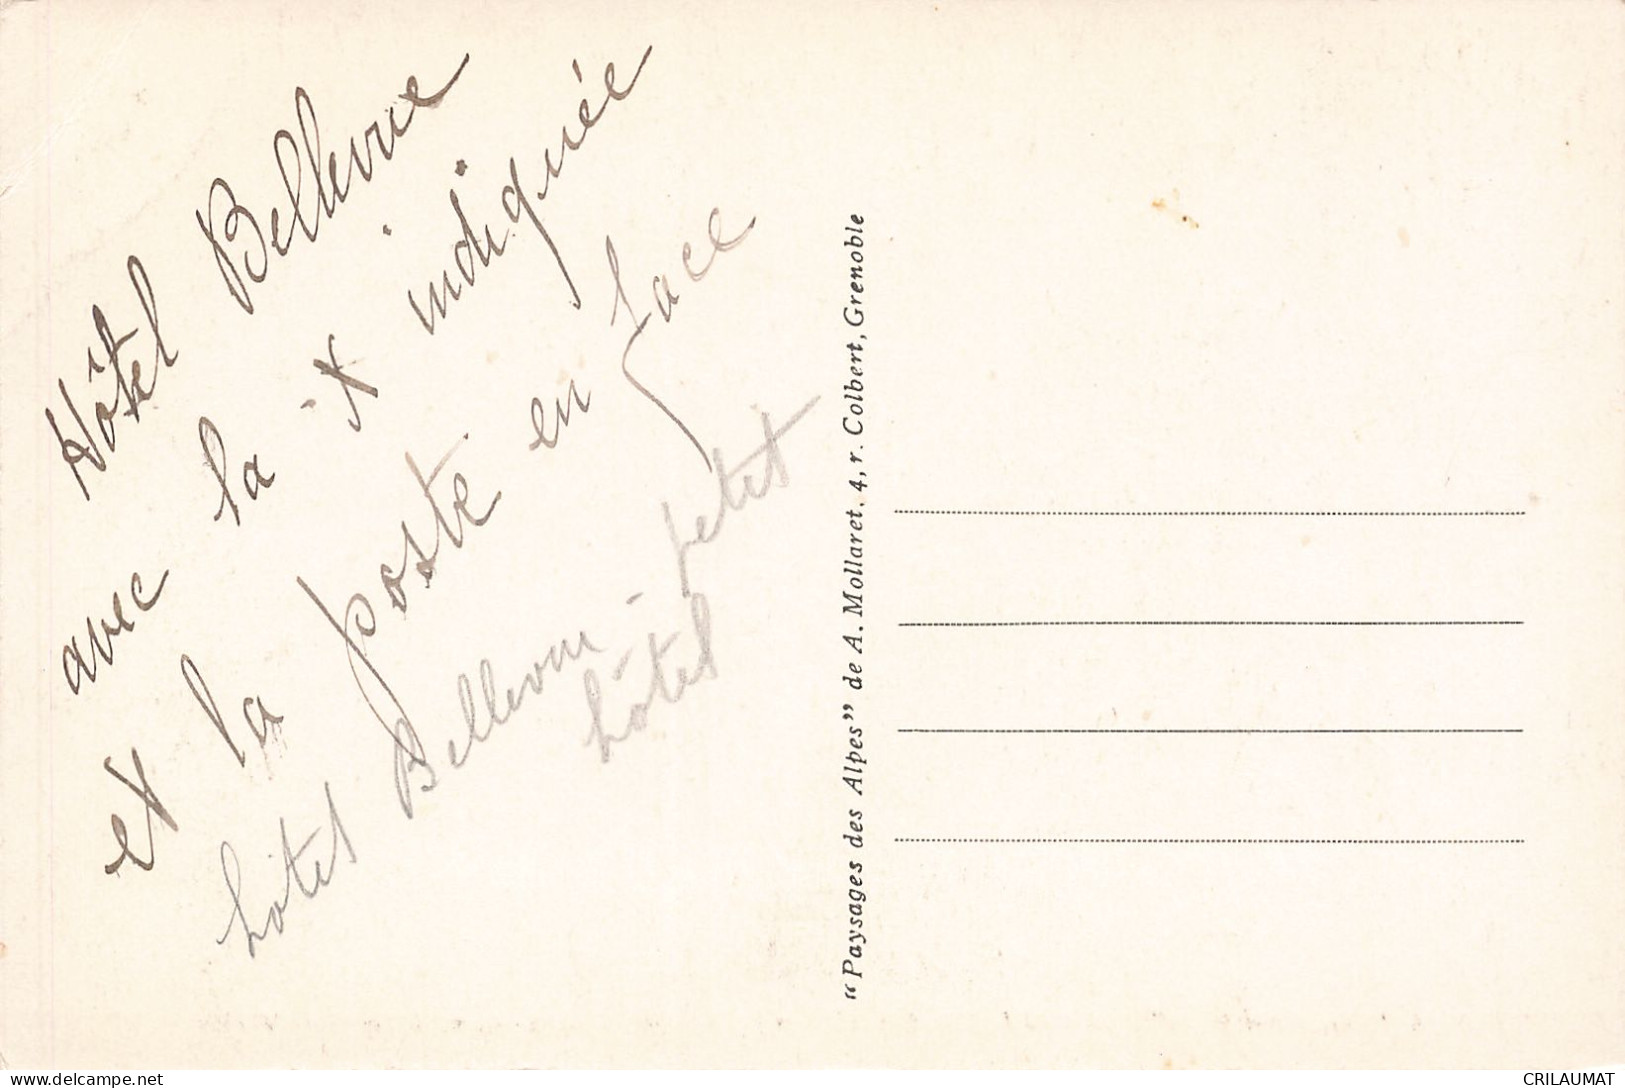 Hôtel Bellevue
avec la x indiquée
et la poste en face
hôtel Bellevue - petit
hôtel
“Paysages des Alpes” de A. Mollaret. 4, r. Colbert, Grenoble
www.delcampe.net
CRILAUMAT